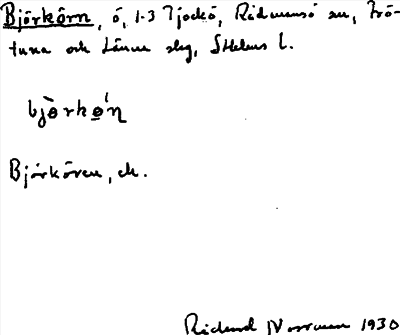 Björkörn, ö, 1-3 Tjockö, Rådmansö sn, Frö-
tuna och Länna skg, Sthlms l.
bjö̀rkǿn
Björkören, ek.
Rickard Norrman 1930